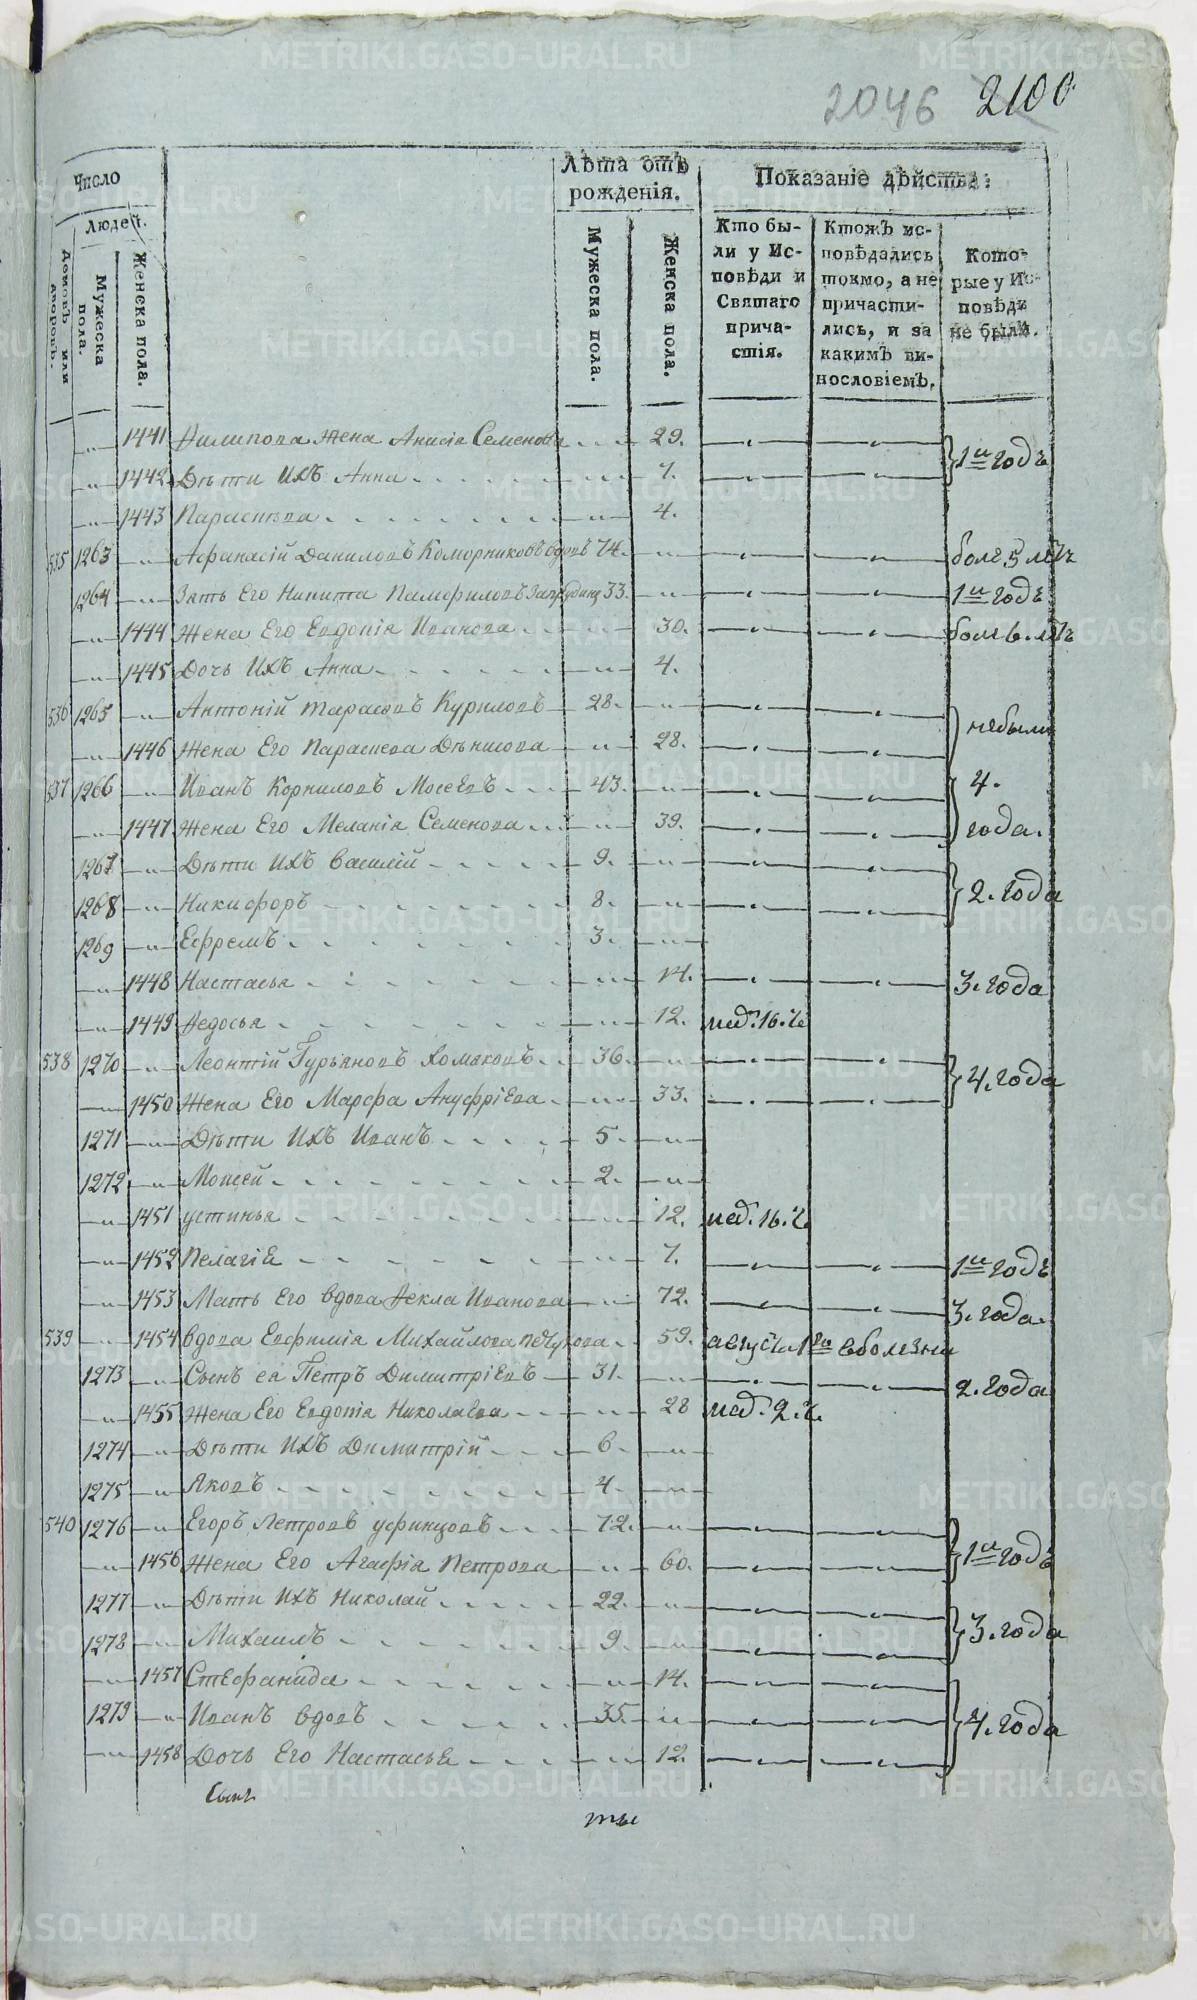 2046 2100
Число
Людей.
Домовъ или дворовъ.
Мужеска пола.
Женска пола.
Лѣта отъ рожденія.
Мужеска пола.
Женска пола.
Показаніе дѣйства:
Кто были у Исповѣди и Святаго причастія.
Ктожъ исповѣдались токмо, а не причастились, и за какимъ винословіемъ.
Которые у Исповѣди не были.
1441 Филипова жена Анисія Семенова 29. } 1й годъ
1442 Дѣти ихъ Анна 7.
1443 Парасковa 4.
535 1263 Афанасій Даниловъ Коморниковъ вдовъ 74. боле 5 лѣтъ
1264 Зять Его Никита Памфиловъ 33. 1й годъ
1444 Жена Его Евдопія Иванова 30. боле 6. лѣтъ
1445 Дочь ихъ Анна 4.
536 1265 Антоній Тарасовъ Куриловъ 28. } небыли
1446 Жена Его Парасковa Денисова 28.
537 1266 Иванъ Корниловъ Мосеевъ 43. } 4.
1447 Жена Его Меланія Семенова 39. года.
1267 Дѣти ихъ Василій 9. } 2. года
1268 Никифоръ 8.
1269 Ефремъ 3.
1448 Настасья 14. 3. года
1449 Федосья 12. 16. ч
538 1270 Леонтій Гурьяновъ Хомяковъ 36. } 4. года
1450 Жена Его Марфа Ануфріева 33.
1271 Дѣти ихъ Иванъ 5.
1272 Моисей 2.
1451 устинья 12. 16. ч
1452 Пелагія 7. 1й годъ
1453 Мать Его вдова Фекла Иванова 72. 3. года.
539 1454 вдова Евфимія Михайлова Петухова 59. августа 1го вболезни
1273 Сынъ ея Петръ Димитріевъ 31. 2. года
1455 Жена Его Евдопія Николаева 28 2. ч.
1274 Дѣти ихъ Димитрій 6.
1275 Яковъ 4.
540 1276 Егоръ Петровъ уфинцовъ 72. } 1й годъ
1456 Жена Его Агафія Петрова 60.
1277 Дѣти ихъ Николай 22. } 3. года
1278 Михаилъ 9.
1457 Стефанида 14. } 4. года
1279 Иванъ вдовъ 35.
1458 Дочь Его Настасья 12.
METRIKI.GASO-URAL.RU